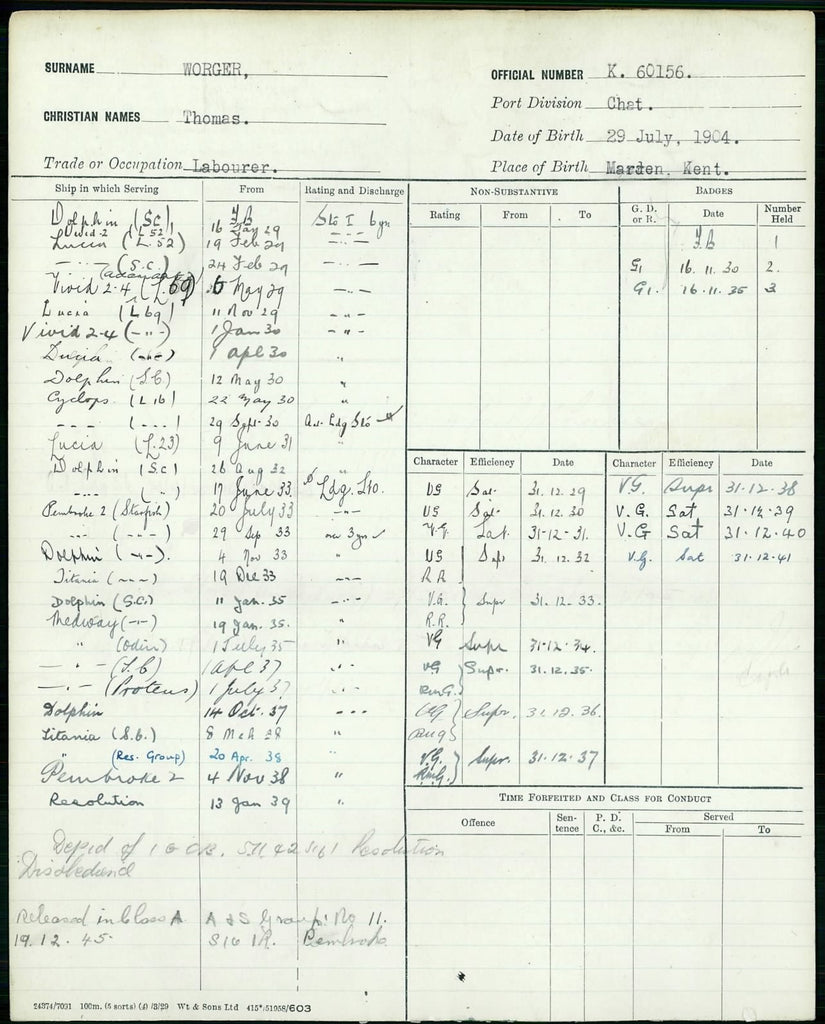 SURNAME WORGER,
OFFICIAL NUMBER K. 60156.
Port Division Chat.
CHRISTIAN NAMES Thomas.
Date of Birth 29 July, 1904.
Trade or Occupation Labourer.
Place of Birth Marden, Kent.
Ship in which Serving From Rating and Discharge
Dolphin (S.C) 16 Jan 29 Sto I
Lucia (L.52) 19 Feb 29 — " —
— " — (S.C.) 24 Feb 29 — " —
Vivid 2-4 (L.69) 6 May 29 — " —
Lucia (L69) 11 Nov 29 — " —
Vivid 2-4 (— " —) 1 Jan 30 — " —
Lucia 1 Apl 30 "
Dolphin (S.C.) 12 May 30 "
Cyclops (L16) 22 May 30 "
— — — (— — —) 29 Sept 30 Act Ldg Sto
Lucia (L.23) 9 June 31
Dolphin (S.C) 26 Aug 32 "
— — — ( " ) 17 June 33 Ldg. Sto.
Pembroke 2 (Starfish) 20 July 33 — " —
— — — (— " —) 29 Sep 33
Dolphin (— " —). 4 Nov 33 "
Titania (— — —) 19 Dec 33 — " —
Dolphin (S.C.) 11 Jan. 35 — " —
Medway (— " —) 19 Jan. 35. "
" (Odin) 1 July 35 "
— " — (S.C) 1 Apl 37 — " —
— " — (Proteus) 1 July 37 "
Dolphin 14 Oct. 37 — — —
Titania (S.C.) 8 Mch 38 "
" (Res. Group) 20 Apr. 38
Pembroke 2 4 Nov 38 "
Resolution 13 Jan 39 "
Resolution
Released in Class A A & S Group: No 11.
19.12.45. Pembroke
24374/7091 100m. (5 sorts) (4) /3/29 Wt & Sons Ltd 415*/51058/603
NON-SUBSTANTIVE
Rating From To
BADGES
G. D. or R. Date Number Held
1
G1 16.11.30 2.
G1. 16.11.35 3
Character Efficiency Date
VG Sat. 31.12.29
VG Sat. 31.12.30
V.G. Sat. 31-12-31.
VG 31.12.32
R.R
V.G. Supr 31.12.33.
R.R.
VG Supr 31.12.34.
VG Supr. 31.12.35.
VG Supr. 31.12.36.
V.G. Supr. 31.12.37
Character Efficiency Date
V.G. Supr 31-12-38
V.G. Sat 31.12.39
V.G Sat 31.12.40
V.G. Sat 31.12.41
TIME FORFEITED AND CLASS FOR CONDUCT
Offence Sentence P. D. C., &c. Served
From To